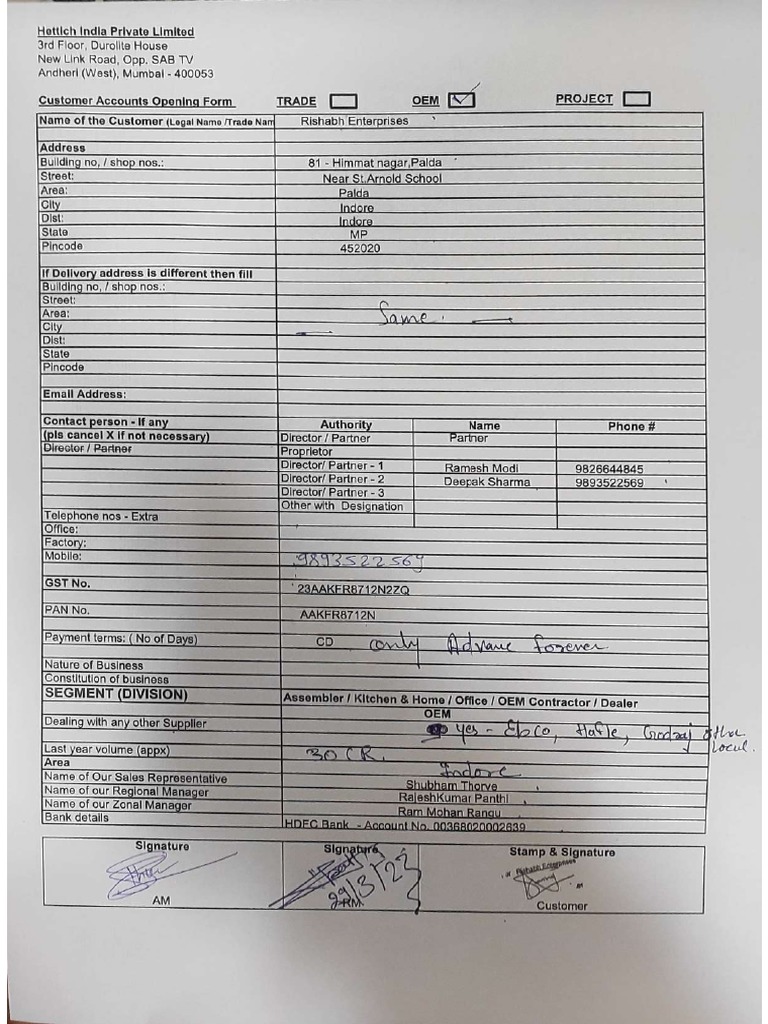 Hettich India Private Limited
3rd Floor, Durolite House
New Link Road, Opp. SAB TV
Andheri (West), Mumbai - 400053
Customer Accounts Opening Form TRADE OEM PROJECT
Name of the Customer (Legal Name /Trade Nam Rishabh Enterprises
Address
Building no, / shop nos.: 81 - Himmat nagar,Palda
Street: Near St.Arnold School
Area: Palda
City Indore
Dist: Indore
State MP
Pincode 452020
If Delivery address is different then fill
Building no, / shop nos.:
Street:
Area: Same.
City
Dist:
State
Pincode
Email Address:
Contact person - If any Authority Name Phone #
(pls cancel X if not necessary) Director / Partner Partner
Director / Partner Proprietor
Director/ Partner - 1 Ramesh Modi 9826644845
Director/ Partner - 2 Deepak Sharma 9893522569
Director/ Partner - 3
Other with Designation
Telephone nos - Extra
Office:
Factory:
Mobile: 9893522569
GST No. 23AAKFR8712N2ZQ
PAN No. AAKFR8712N
Payment terms: ( No of Days) CD only Advance forever
Nature of Business
Constitution of business
SEGMENT (DIVISION) Assembler / Kitchen & Home / Office / OEM Contractor / Dealer
OEM
Dealing with any other Supplier yes - Ebco, Hafle, Godrej other
local.
Last year volume (appx) 30 CR.
Area Indore
Name of Our Sales Representative Shubham Thorve
Name of our Regional Manager RajeshKumar Panthi
Name of our Zonal Manager Ram Mohan Rangu
Bank details HDFC Bank - Account No. 00368020002639
Signature Signature Stamp & Signature
Rishabh Enterprises
29/3/22
AM RM Customer